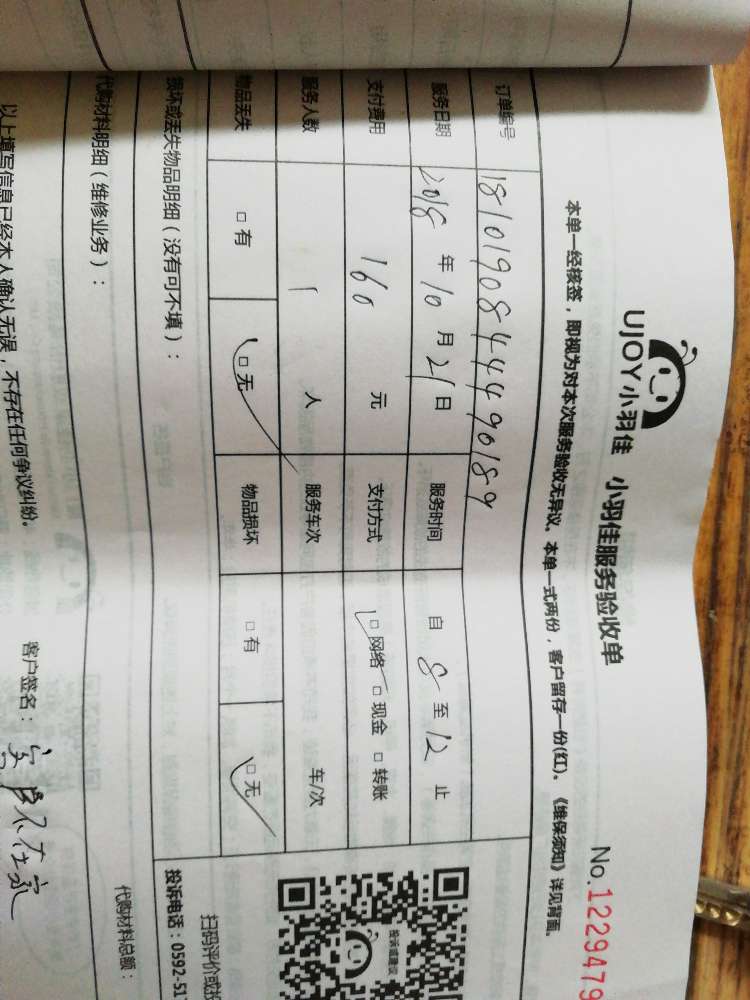 UJOY小羽佳 小羽佳服务验收单
No.1229479
本单一经核签，即视为对本次服务验收无异议。本单一式两份，客户留存一份(红)。《维保须知》详见背面。
订单编号 18101908444490189
服务日期 2018 年 10 月 21 日 服务时间 自 8 至 12 止
支付费用 160 元 支付方式 □网络 □现金 □转账
服务人数 1 人 服务车次 车/次
物品丢失 □有 □无 物品损坏 □有 □无
损坏或丢失物品明细（没有可不填）：
投诉建议
扫码评价或投
投诉电话：0592-517
代购材料明细（维修业务）：
代购材料总额：
以上填写信息已经本人确认无误，不存在任何争议纠纷。
客户签名：客户不在家